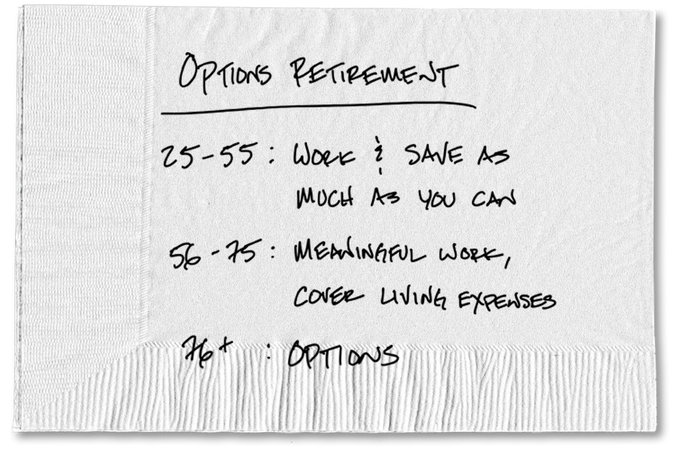 OPTIONS RETIREMENT
25-55: WORK & SAVE AS
MUCH AS YOU CAN
56-75: MEANINGFUL WORK,
COVER LIVING EXPENSES
76+ : OPTIONS